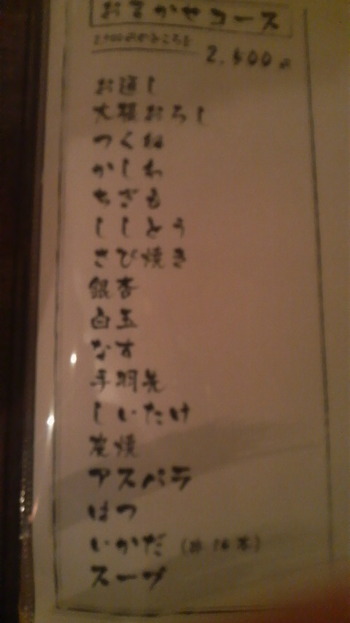 おまかせコース
2,400円
お通し
大根おろし
つくね
かしわ
ちぎも
ししとう
さび焼き
銀杏
白玉
なす
手羽先
しいたけ
炭焼
アスパラ
はつ
いかだ
スープ